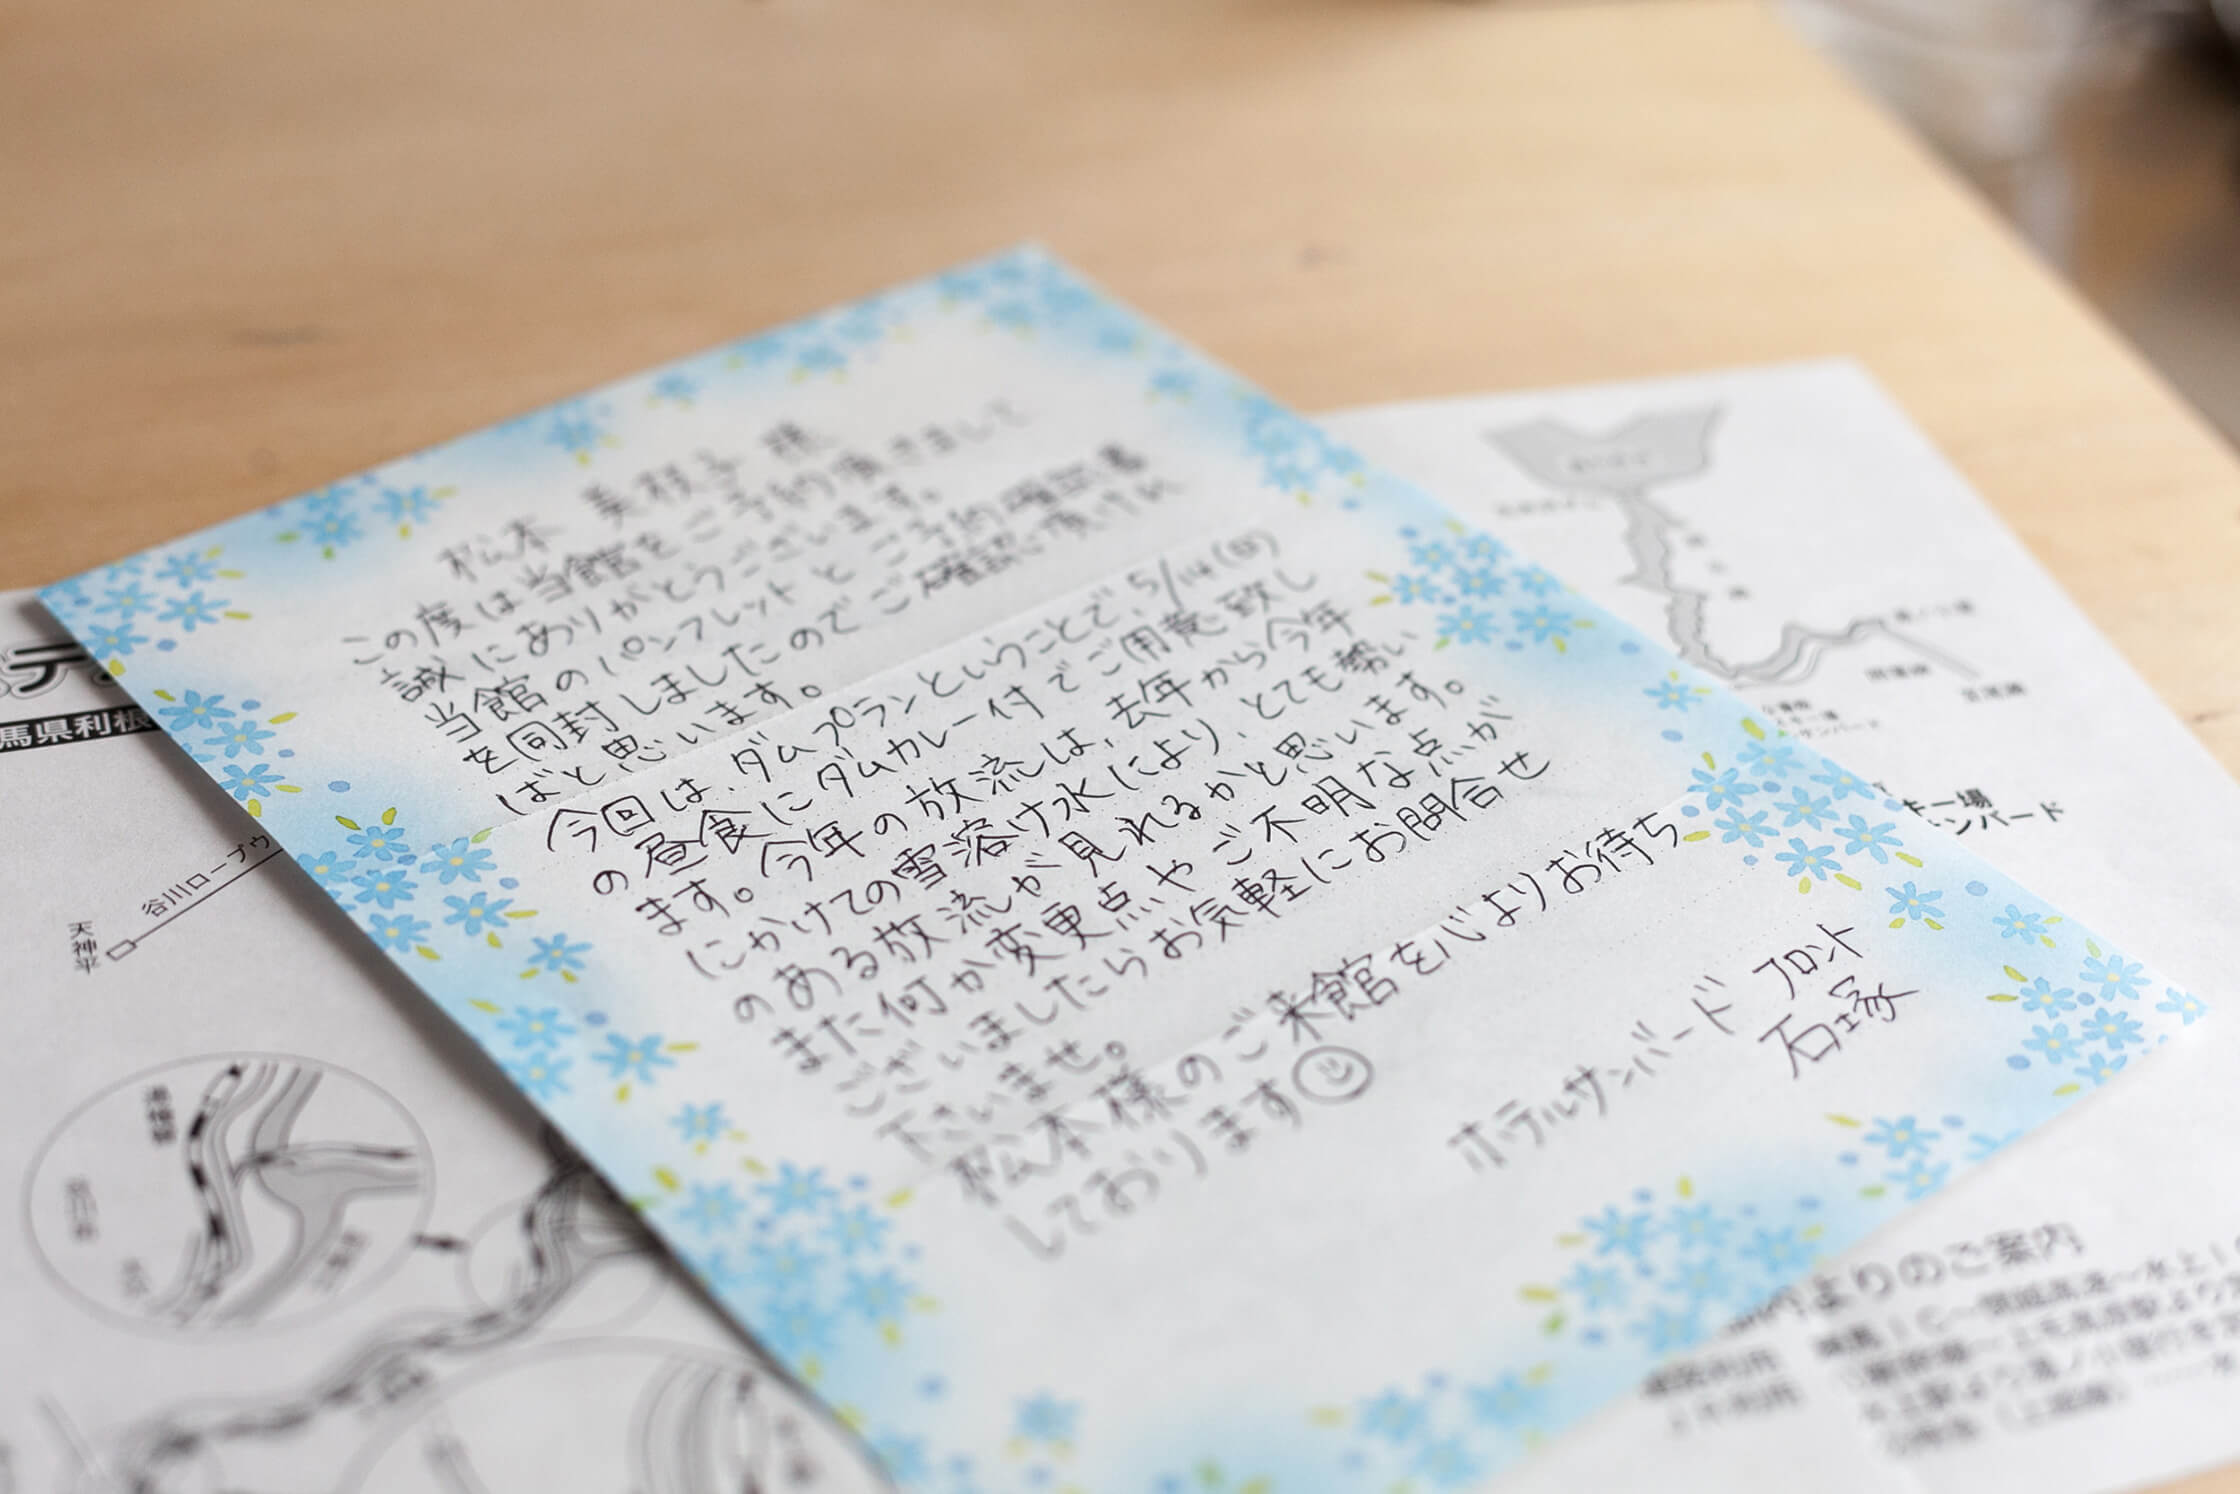 松本 美枝子 様
この度は当館をご予約頂きまして
誠にありがとうございます。
当館のパンフレットとご予約確認書
を同封しましたのでご確認頂ければ
ばと思います。
今回は、ダムプランということで、5/14(日)
の昼食にダムカレー付でご用意致し
ます。今年の放流は、去年から今年
にかけての雪溶け水により、とても勢い
のある放流が見れるかと思います。
また何か変更点やご不明な点が
ございましたらお気軽にお問合せ
下さいませ。
松本様のご来館を心よりお待ち
しております
ホテルサンバード フロント
石塚
馬県利根
谷川ロープウ
天神平
キー場
ンバード
よりのご案内